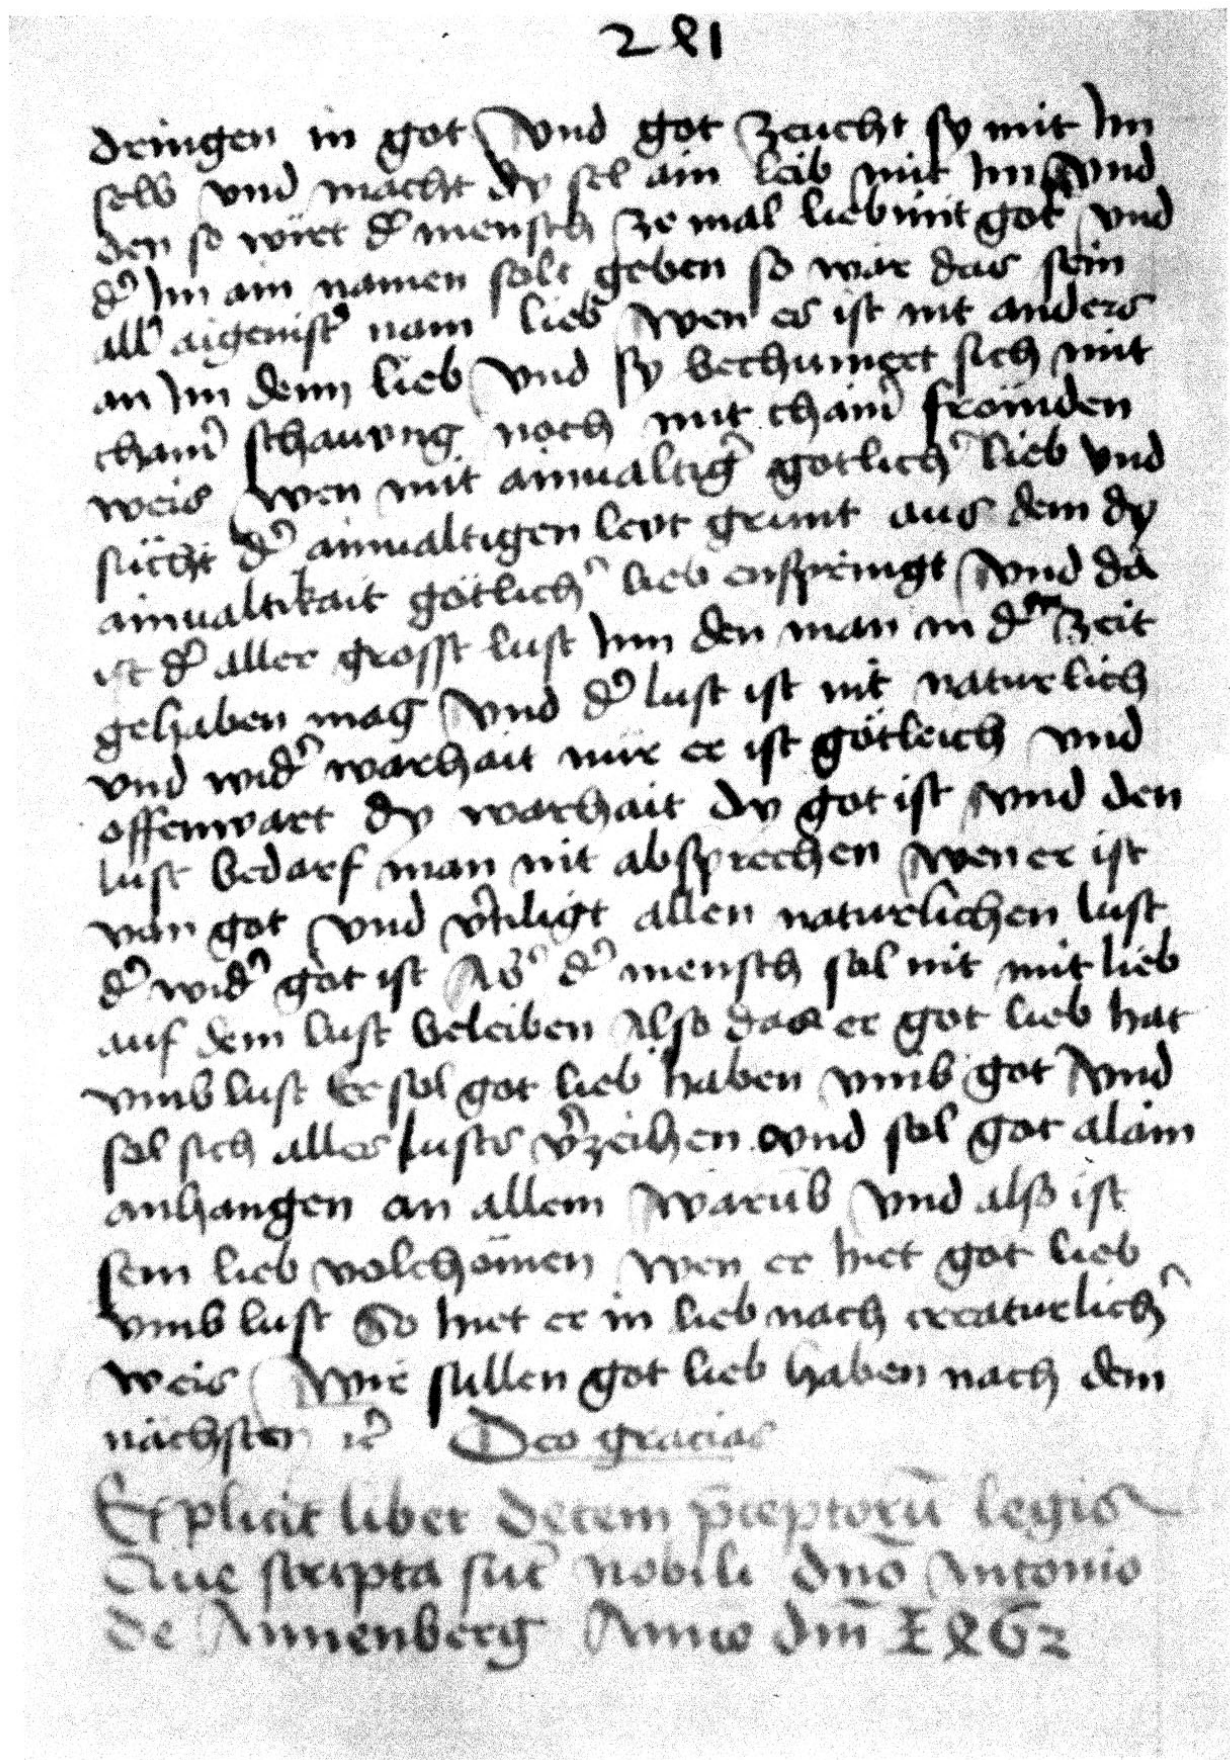 241
dringen in got Vnd got zeucht sy mit Im
selb vnd macht dy sel ain leib mit Im Vnd
den so wirt d' mensch ze mal lieb mit got vnd
d' Im ain namen solt geben so wär das sein
all' aigenist' nam lieb Wen es ist nit anders
an Im denn lieb Vnd sy bechumert sich mit
chain' schauvng noch mit chain' frömden
weis Wen mit ainualtig' gotlich' lieb vnd
sücht d' ainualtigen leut grunt aus dem dy
ainualtikait götlich' lieb enspringt Vnd da
ist d' aller grosst lust Inn den man in d' zeit
gehaben mag Vnd d' lust ist nit naturlich
vnd wid' warhait nür er ist götleich vnd
offenwart dy warhait dy got ist Vnd den
lust bedarf man nit absprechen Wen er ist
von got Vnd v'tiligt allen naturlichen lust
d' wid' got ist Ab' d' mensch sol nit mit lieb
auf dem lust beleiben Also das er got lieb hat
vmb lust Er sol got lieb haben vmb got Vnd
sol sich alles lusts v'zeihen vnd sol got alain
anhangen an allem Warūb Vnd also ist
sein lieb volchōmen wen er hiet got lieb
vmb lust So hiet er in lieb nach creaturlich'
weis Wir sullen got lieb haben nach dem
nächsten rc Deo gracias
Explicit liber decem p̄ceptorū legis
Que scripta sūt Nobili dn̄o Antonio
de Annenberg Anno dm̄ 1462